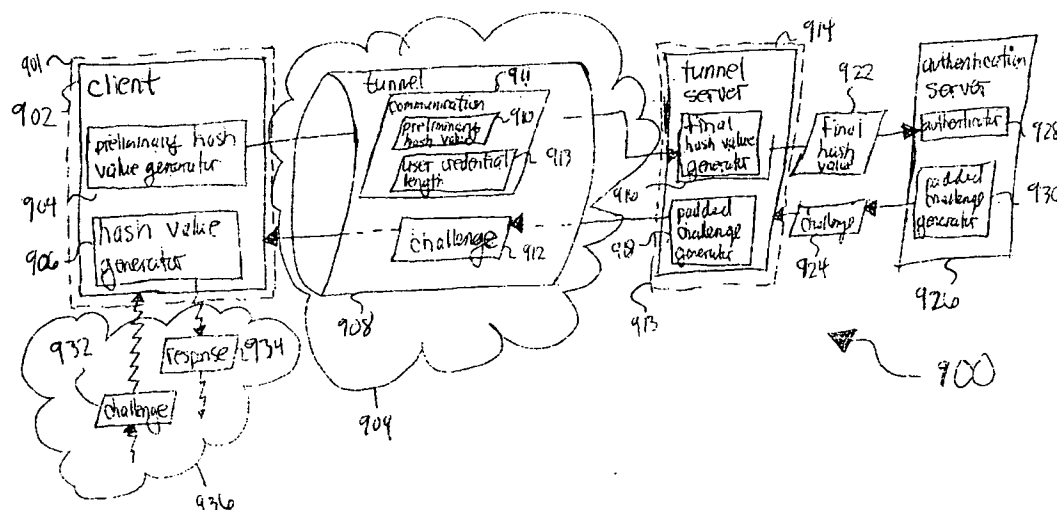 901
902
client
preliminary hash
value generator
904
906
hash value
generator
tunnel
911
communication
910
preliminary
hash value
user credential
length
913
challenge
912
908
909
914
tunnel
server
final
hash value
generator
916
padded
challenge
generator
918
913
922
final
hash
value
challenge
924
authentication
server
authenticator
928
padded
challenge
generator
930
926
900
932
challenge
response
934
936